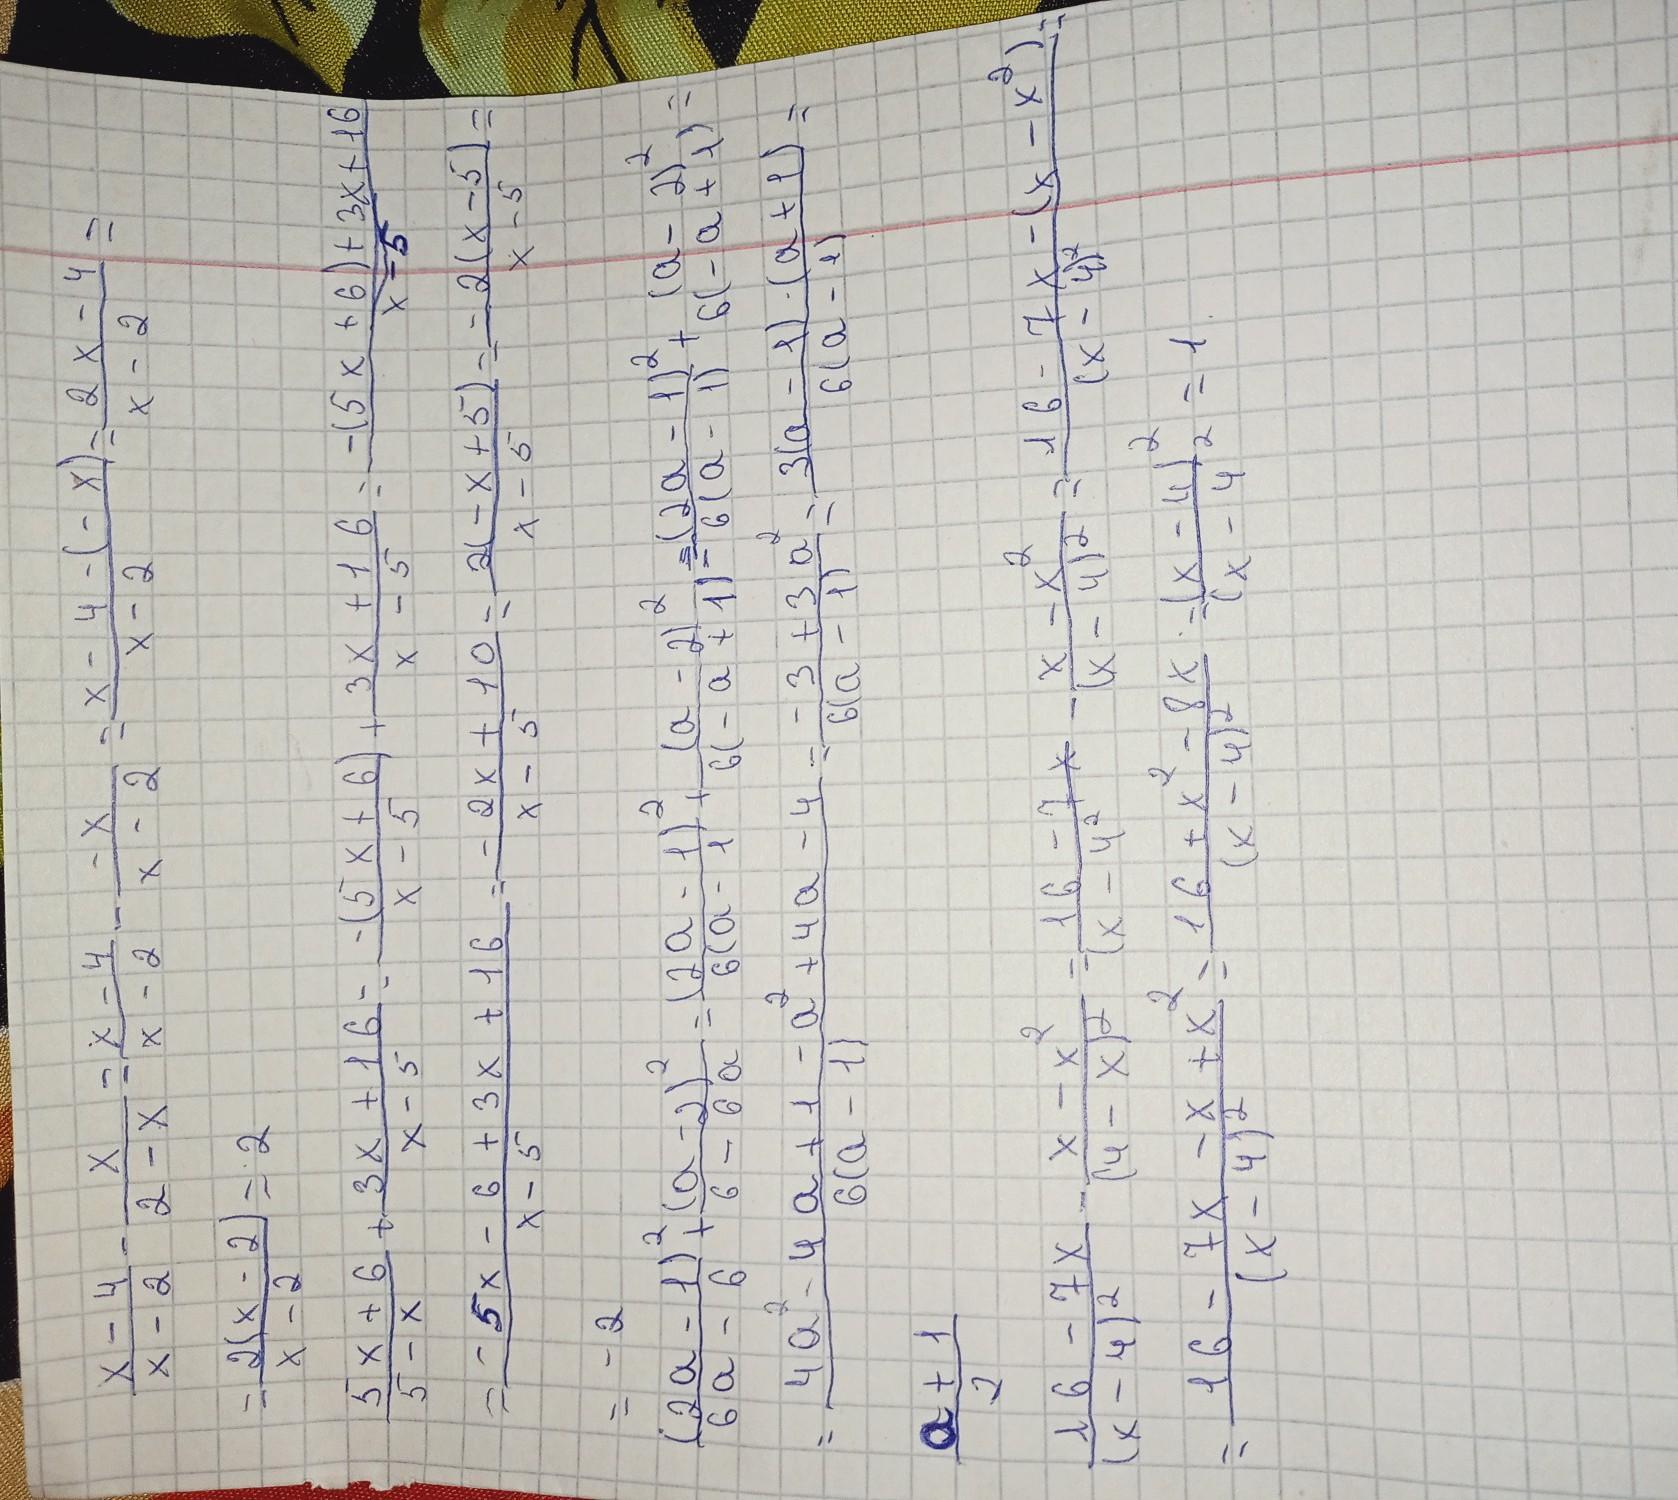 (x-4)/(x-2) - x/(2-x) = (x-4)/(x-2) - (-x)/(x-2) = (x-4-(-x))/(x-2) = (2x-4)/(x-2) =
= 2(x-2)/(x-2) = 2
(5x+6)/(5-x) + (3x+16)/(x-5) = (-(5x+6))/(x-5) + (3x+16)/(x-5) = (-(5x+6)+3x+16)/(x-5)
= (-5x-6+3x+16)/(x-5) = (-2x+10)/(x-5) = 2(-x+5)/(x-5) = (-2(x-5))/(x-5) =
= -2
(2a-1)²/(6a-6) + (a-2)²/(6-6a) = (2a-1)²/(6(a-1) + (a-2)²/(6(-a+1)) = (2a-1)²/(6(a-1)) + (a-2)²/(6(-a+1)) =
= (4a²-4a+1-a²+4a-4)/(6(a-1)) = (-3+3a²)/(6(a-1)) = (3(a-1)·(a+1))/(6(a-1)) =
(a+1)/2
(16-7x)/(x-4)² - (x-x²)/(4-x)² = (16-7x)/(x-4² - (x-x²)/(x-4)² = (16-7x-(x-x²))/(x-4)² =
= (16-7x-x+x²)/(x-4)² = (16+x²-8x)/(x-4)² = (x-4)²/(x-4² = 1